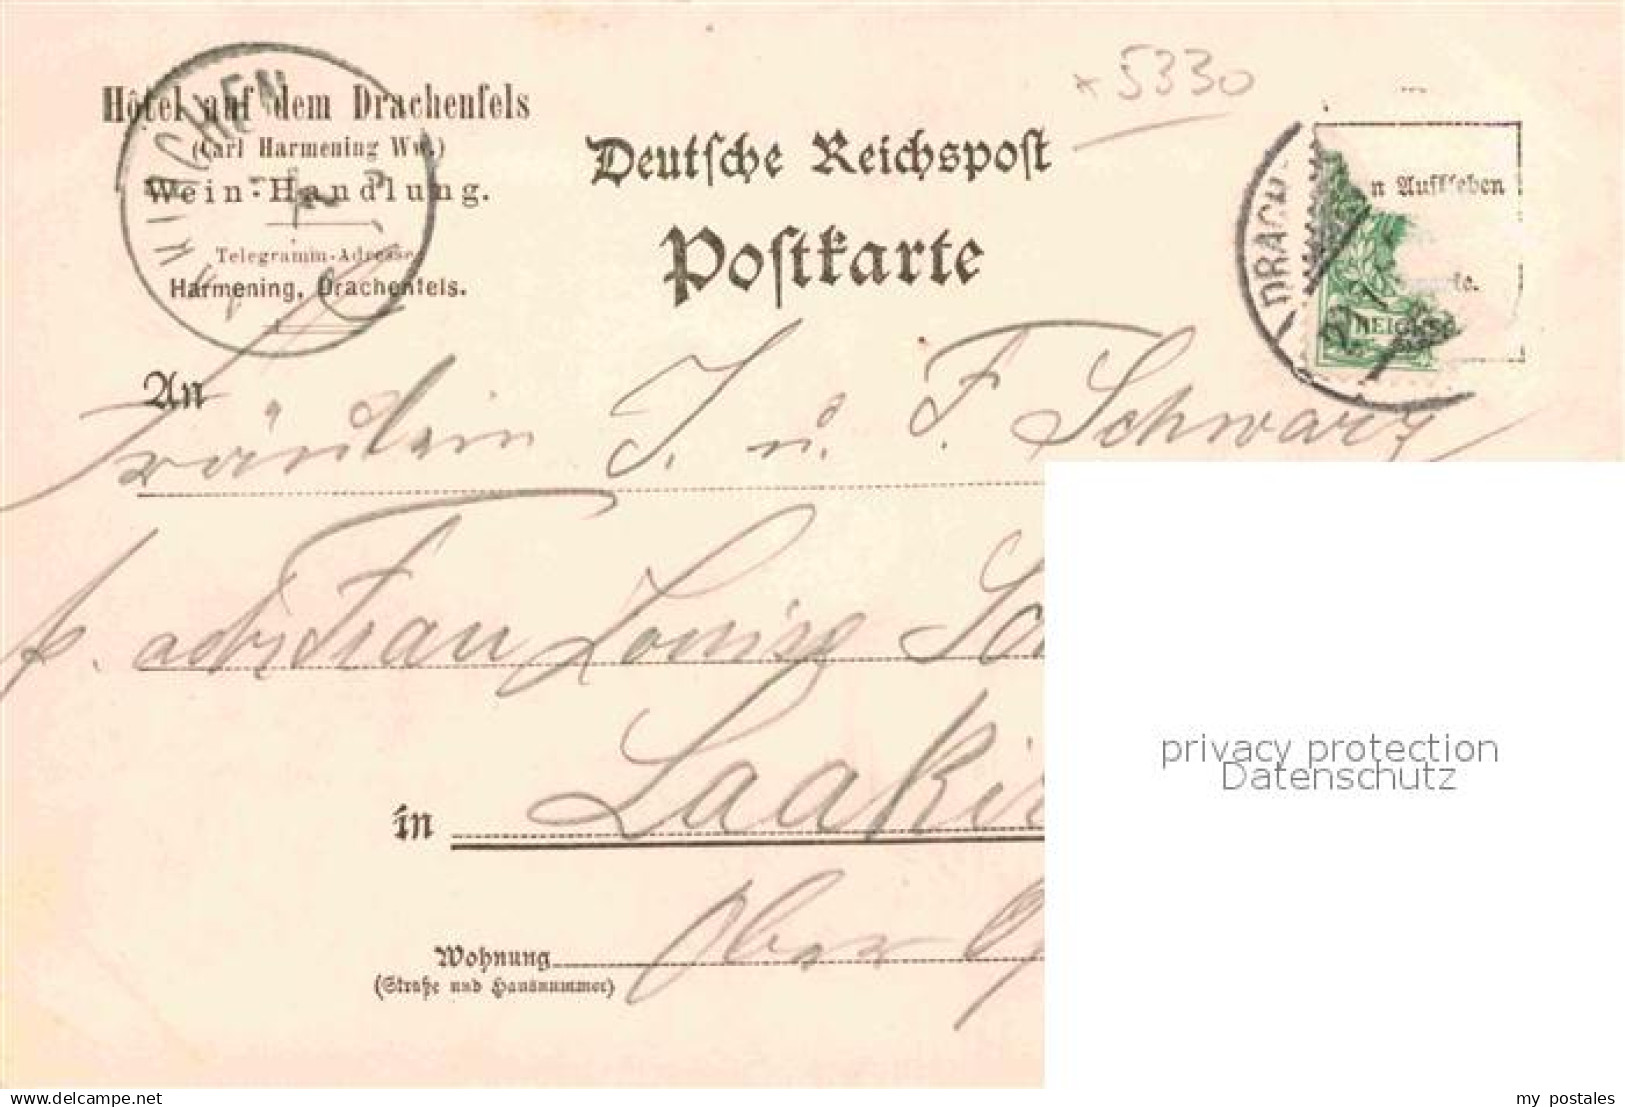 * 5330
Hôtel auf dem Drachenfels
(Carl Harmening Ww.)
Wein-Handlung.
Telegramm-Adresse
Harmening, Drachenfels.
KIRCHEN
Deutsche Reichspost
Postkarte
DRACH
n Aufkleben
REICHSP
An Fräulein J. u. F. Schwarz
p. adr. Frau Louise Sch
in Laakir
Wohnung Ober
(Straße und Hausnummer)
privacy protection
Datenschutz
my_postales